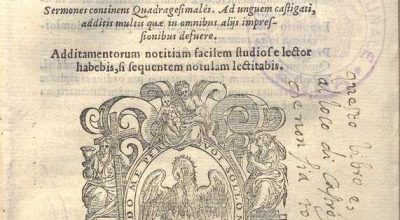 Sermones continens Quadragesimales. Ad unguem castigati,
additis multis quæ in omnibus alijs impres-
sionibus defuere.
Additamentorum notitiam facilem studiose lector
habebis, si sequentem notulam lectitabis.
DO ME PER VOI SOL
questo libro e
loco di Capr
e non sia